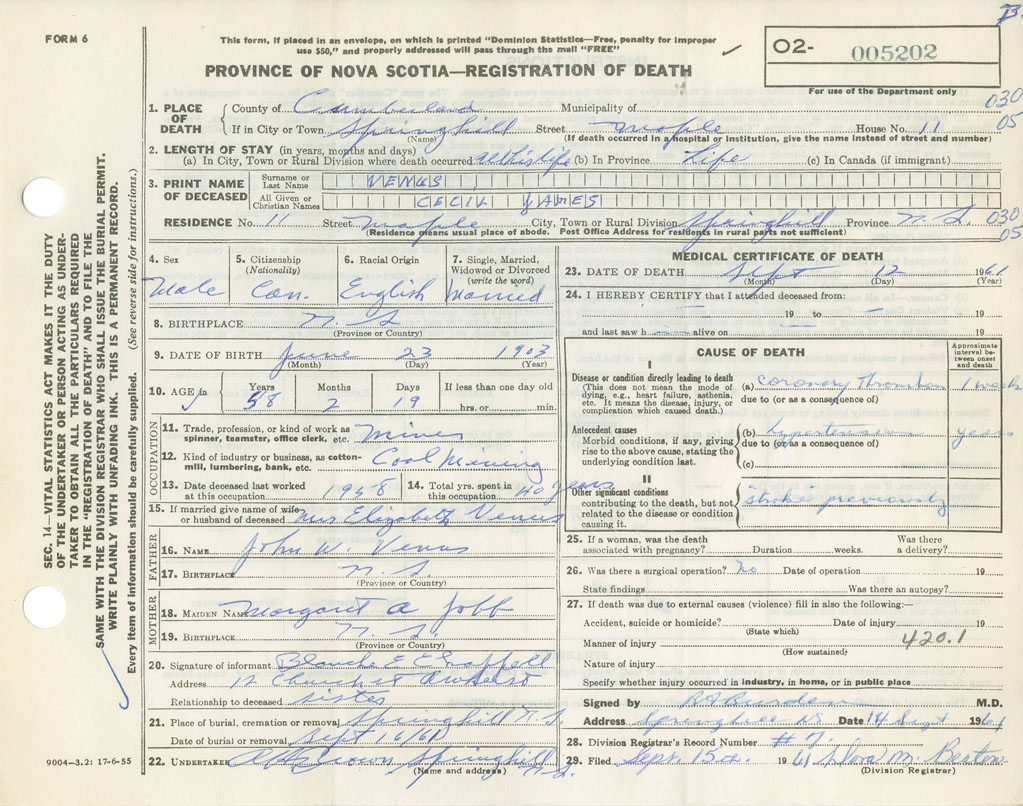 FORM 6
This form, if placed in an envelope, on which is printed "Dominion Statistics—Free, penalty for improper
use $50," and properly addressed will pass through the mail "FREE"
PROVINCE OF NOVA SCOTIA—REGISTRATION OF DEATH
02- 005202
For use of the Department only
1. PLACE OF DEATH
County of Cumberland Municipality of
030
05
If in City or Town Springhill Street Maple House No. 11
(Name) (If death occurred in a hospital or institution, give the name instead of street and number)
2. LENGTH OF STAY (in years, months and days)
(a) In City, Town or Rural Division where death occurred all his life (b) In Province Life (c) In Canada (if immigrant)
3. PRINT NAME OF DECEASED
Surname or Last Name VENUS
All Given or Christian Names CECIL JAMES
RESIDENCE No. 11 Street Maple City, Town or Rural Division Springhill Province N.S.
030
05
(Residence means usual place of abode. Post Office Address for residents in rural parts not sufficient)
4. Sex Male
5. Citizenship (Nationality) Can.
6. Racial Origin English
7. Single, Married, Widowed or Divorced (write the word) Married
8. BIRTHPLACE N.S.
(Province or Country)
9. DATE OF BIRTH June 23 1903
(Month) (Day) (Year)
10. AGE in Years 58 Months 2 Days 19 If less than one day old hrs. or min.
OCCUPATION
11. Trade, profession, or kind of work as spinner, teamster, office clerk, etc. Miner
12. Kind of industry or business, as cotton-mill, lumbering, bank, etc. Coal Mining
13. Date deceased last worked at this occupation 1958
14. Total yrs. spent in this occupation 40 years
15. If married give name of wife or husband of deceased Mrs Elizabeth Venus
FATHER
16. NAME John W. Venus
17. BIRTHPLACE N.S.
(Province or Country)
MOTHER
18. MAIDEN NAME Margaret A Jobb
19. BIRTHPLACE N.S.
(Province or Country)
20. Signature of informant Blanche E
Address 12 Church St Amherst
Relationship to deceased sister
21. Place of burial, cremation or removal Springhill N.S.
Date of burial or removal Sept 16/61
22. UNDERTAKER Brown Springhill N.S.
(Name and address)
MEDICAL CERTIFICATE OF DEATH
23. DATE OF DEATH Sept 12 1961
(Month) (Day) (Year)
24. I HEREBY CERTIFY that I attended deceased from:
19 to 19
and last saw h alive on 19
CAUSE OF DEATH
Approximate interval between onset and death
I
Disease or condition directly leading to death
(This does not mean the mode of dying, e.g., heart failure, asthenia, etc. It means the disease, injury, or complication which caused death.)
(a) Coronary Thrombosis 1 week
due to (or as a consequence of)
Antecedent causes
Morbid conditions, if any, giving rise to the above cause, stating the underlying condition last.
(b) hypertension years
due to (or as a consequence of)
(c)
II
Other significant conditions
contributing to the death, but not related to the disease or condition causing it.
stroke previously
25. If a woman, was the death associated with pregnancy? Duration weeks. Was there a delivery?
26. Was there a surgical operation? No Date of operation 19
State findings Was there an autopsy?
27. If death was due to external causes (violence) fill in also the following:—
Accident, suicide or homicide? Date of injury 19
(State which)
Manner of injury 420.1
(How sustained)
Nature of injury
Specify whether injury occurred in industry, in home, or in public place
Signed by M.D.
Address Springhill NS Date 14 Sept 1961
28. Division Registrar's Record Number #7.
29. Filed Sept. 15th. 1961
(Division Registrar)
SEC. 14—VITAL STATISTICS ACT MAKES IT THE DUTY
OF THE UNDERTAKER OR PERSON ACTING AS UNDER-
TAKER TO OBTAIN ALL THE PARTICULARS REQUIRED
IN THE "REGISTRATION OF DEATH" AND TO FILE THE
SAME WITH THE DIVISION REGISTRAR WHO SHALL ISSUE THE BURIAL PERMIT.
WRITE PLAINLY WITH UNFADING INK. THIS IS A PERMANENT RECORD.
Every item of information should be carefully supplied. (See reverse side for instructions.)
9004-3.2: 17-6-55